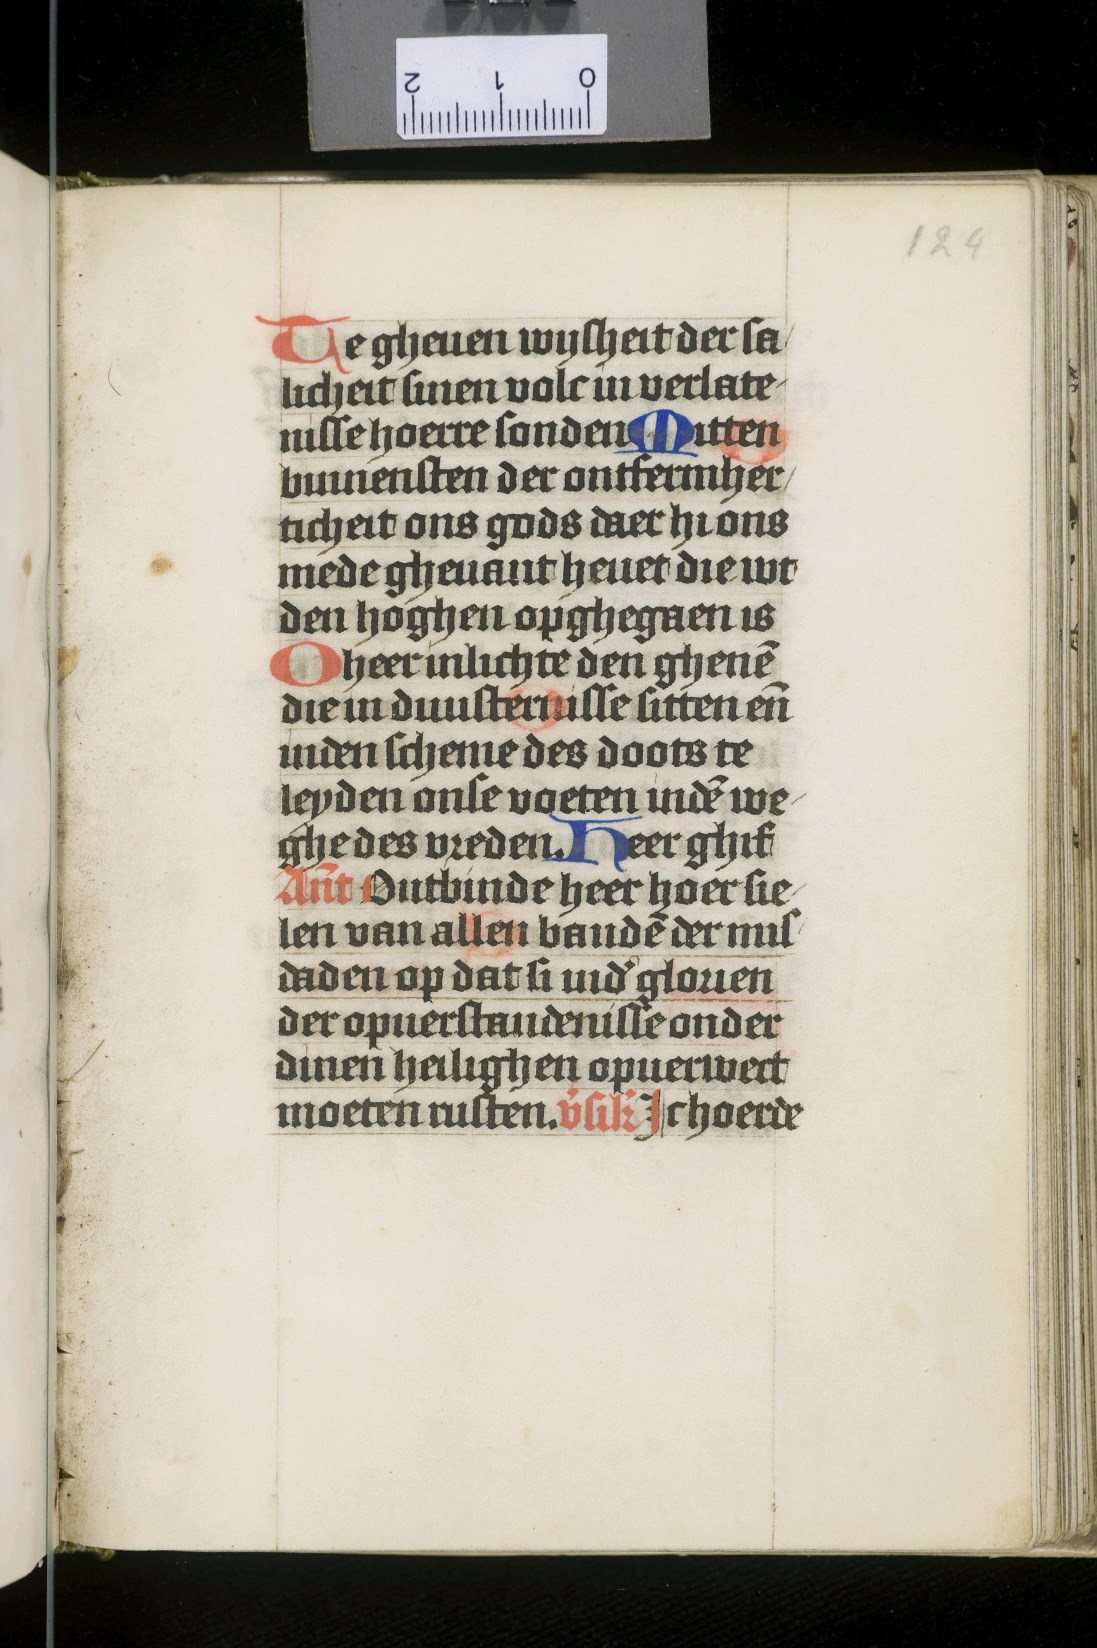 124
Te gheuen wijsheit der sa
licheit sinen volc in verlate
nisse hoerre sonden Mitten
binnensten der ontfermher
ticheit ons gods daer hi ons
mede gheuant heuet die wt
den hoghen opghegaen is
O heer inlichte den ghenē
die in duusternisse sitten eñ
inden scheme des doots te
leyden onse voeten indē we
ghe des vreden. Heer ghif
Ant̄ Ontbinde heer hoer sie
len van allen bandē der mis
daden op dat si ind' glorien
der opuerstandenisse onder
dinen heilighen opuerwect
moeten rusten. v̓sik̄ Ic hoerde
2 1 0